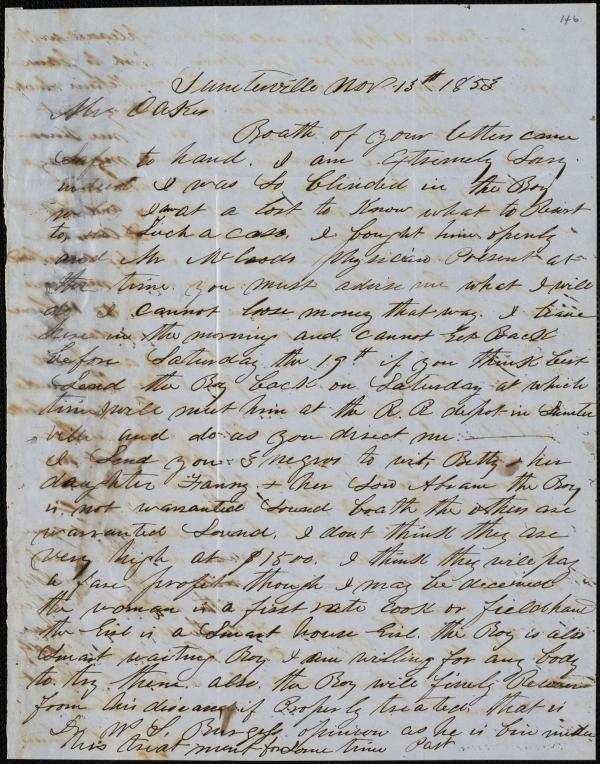 146
Sumterville Nov 13th 1853
Mr Oakes
Boath of your letters came
Safe to hand. I am Extremely Sorry
indeed I was So blinded in the Boy
I at a lost to Know what to Resort
to in Such a case. I bought him openly
and Mr McCaods physician Present at
the time you must advise me what I will
do I cannot loose money that way. I leave
here in the morning and cannot Get Back
before Saturday the 19th if you think best
Send the Boy back on Saturday at which
time I will meet him at the R. R depot in Sumter
ville and do as you direct me
I Send you 3 negros to wit, Betty & her
daughter Franny & her Son Abram the Boy
is not warranted Sound boath the others are
warranted Sound. I dont think they are
very high at $1500. I think they will pay
a fare profit though I may be deceived
the woman is a first rate Cook or fieldhand
the Girl is a Smart house Girl the Boy is also
Smart waiting Boy I am willing for any body
to try them. also the Boy will finely Recover
from this disease if Properly treated that is
Dr W. S. Burgess opinion as he is bin under
his treatment for Some time Past